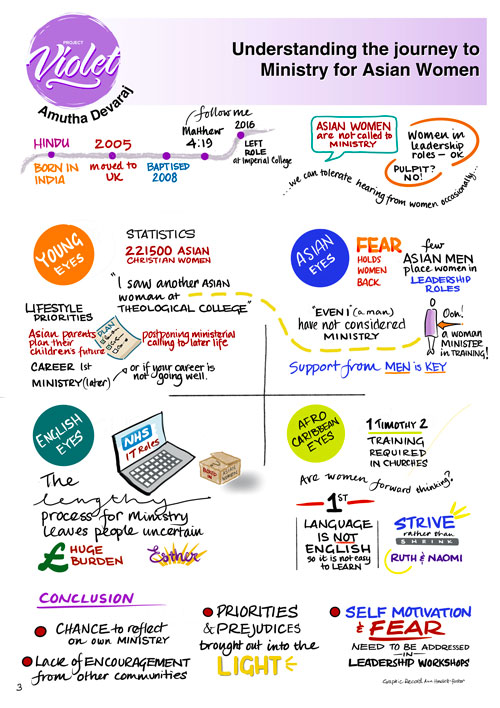 PROJECT
Violet
Amutha Devaraj
Understanding the journey to
Ministry for Asian Women
HINDU
BORN IN
INDIA
2005
moved to
UK
BAPTISED
2008
follow me
Matthew
4:19
2016
LEFT
ROLE
at Imperial College
ASIAN WOMEN
are not called to
MINISTRY
Women in
leadership
roles - OK
PULPIT?
NO!
...we can tolerate hearing from women occasionally...
YOUNG
EYES
STATISTICS
221500 ASIAN
CHRISTIAN WOMEN
"I saw another ASIAN
woman at
THEOLOGICAL COLLEGE"
LIFESTYLE
PRIORITIES
Asian parents
plan their
children's future
PLAN
postponing ministerial
calling to later life
CAREER 1st
MINISTRY (later)
or if your career is
not going well.
ASIAN
EYES
FEAR
HOLDS
WOMEN
BACK
few
ASIAN MEN
place women in
LEADERSHIP
ROLES
"EVEN I (a man)
have not considered
MINISTRY
Ooh!
a woman
MINISTER
in TRAINING!
Support from MEN is KEY
ENGLISH
EYES
NHS
IT Roles
BOXED
IN
ASIAN
WOMEN
The
lengthy
process for Ministry
leaves people uncertain
£ HUGE
BURDEN
Esther
AFRO
CARIBBEAN
EYES
1 TIMOTHY 2
TRAINING
REQUIRED
IN CHURCHES
Are women forward thinking?
1ST
LANGUAGE
IS NOT
ENGLISH
so it is not easy
to LEARN
STRIVE
rather than
SHRINK
RUTH & NAOMI
CONCLUSION
CHANCE to reflect
on own MINISTRY
Lack of ENCOURAGEMENT
from other communities
PRIORITIES
& PREJUDICES
brought out into the
LIGHT
SELF MOTIVATION
& FEAR
NEED TO BE ADDRESSED
IN
LEADERSHIP WORKSHOPS
3
Graphic Record